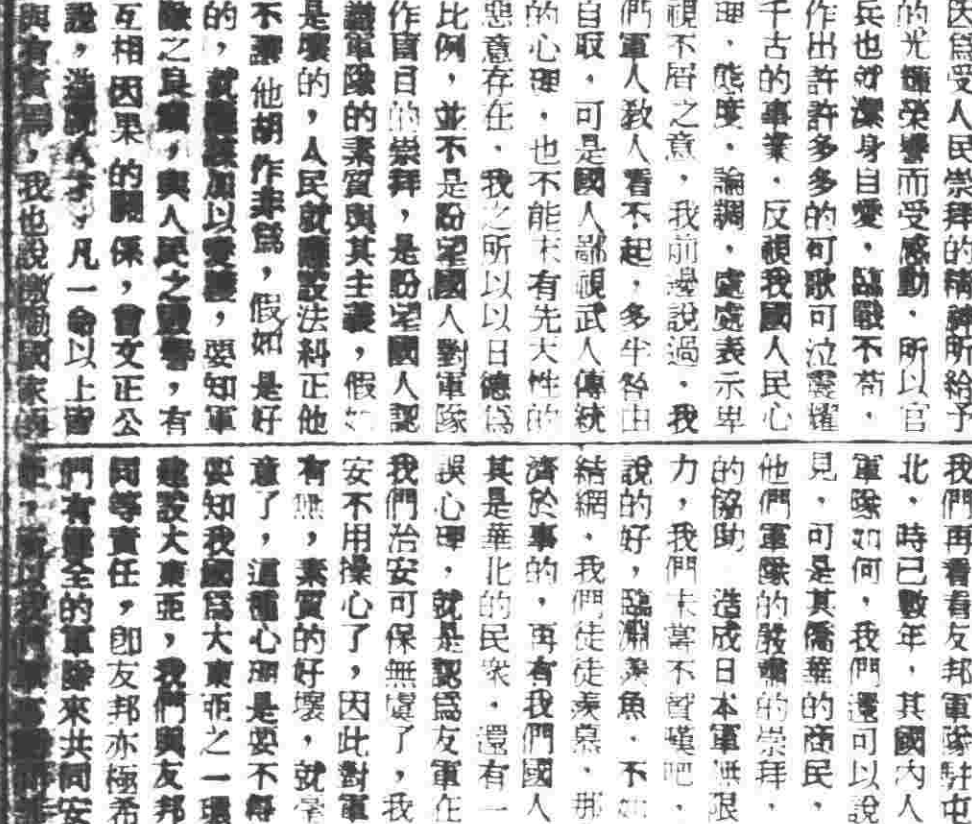 因爲受人民崇拜的精神所給予
的光輝榮譽而受感動，所以官
兵也就潔身自愛，臨戰不苟，
作出許許多多的可歌可泣震耀
千古的事業，反視我國人民心
理，態度，論調，處處表示卑
視不屑之意，我前邊說過，我
們軍人敎人看不起，多半咎由
自取，可是國人鄙視武人傳統
的心理，也不能末有先天性的
惡意存在，我之所以以日德爲
比例，並不是盼望國人對軍隊
作盲目的崇拜，是盼望國人認
識軍隊的素質與其主義，假如
是壞的，人民就應設法糾正他
不讓他胡作非爲，假如是好
的，就應該加以愛護，要知軍
隊之良 ，與人民之 ，有
互相因果的關係，曾文正公
說， 人才，凡一命以上皆
與有責焉，我也說 國家
我們再看看友邦軍隊駐屯
北，時已數年，其國內人
軍隊如何，我們還可以說
見，可是其僑華的商民，
他們軍隊的 的崇拜，
的協助 造成日本軍無限
力，我們未嘗不贊嘆吧，
說的好，臨淵羨魚，不如
結網，我們徒徒羨慕，那
濟於事的，再有我們國人
其是華北的民衆，還有一
誤心理，就是認爲友軍在
我們治安可保無慮了，我
安不用操心了，因此對軍
有無，素質的好壞，就毫
意了，這種心理是要不得
要知我國爲大東亞之一環
建設大東亞，我們與友邦
同等責任，卽友邦亦極希
們有健全的軍隊來共同安
亞，所以我們